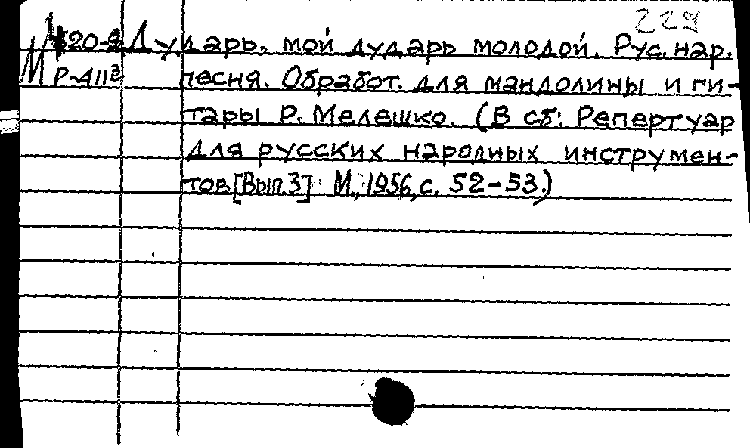 229
М 420-2 Дударь, мой дударь молодой. Рус. нар.
Р-411² песня. Обработ. для мандолины и ги-
тары Р. Мелешко. (В сб: Репертуар
для русских народных инструмен-
тов [Вып. 3] М., 1956, с. 52-53.)